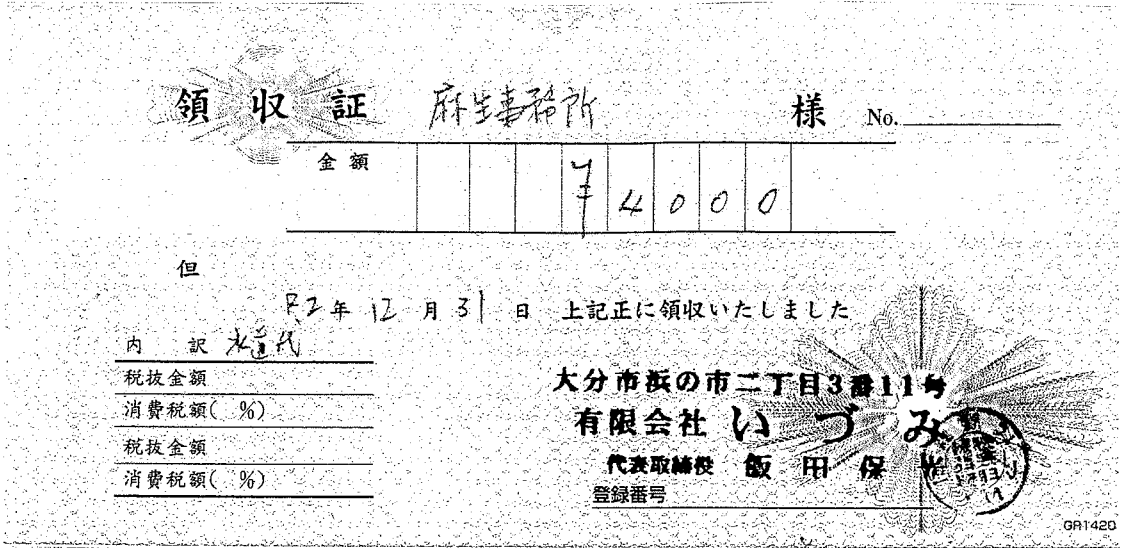 領収証 麻生事務所 様 No.
金額 ¥4000
但
R2年12月31日 上記正に領収いたしました
内訳 水道代
税抜金額
消費税額( %)
税抜金額
消費税額( %)
大分市浜の市二丁目3番11号
有限会社 いづみ
代表取締役 飯田保
登録番号
GR1420